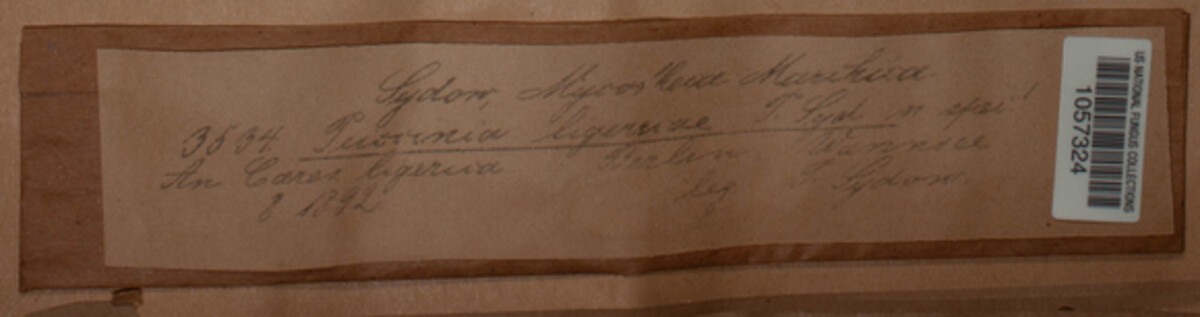 Sydow, Mycotheca Marchica
3534 Puccinia ligericae P. Syd. n. spec!
An Carex ligerica Berlin Wannsee
8 1892 leg P. Sydow.
US NATIONAL FUNGUS COLLECTIONS
1057324